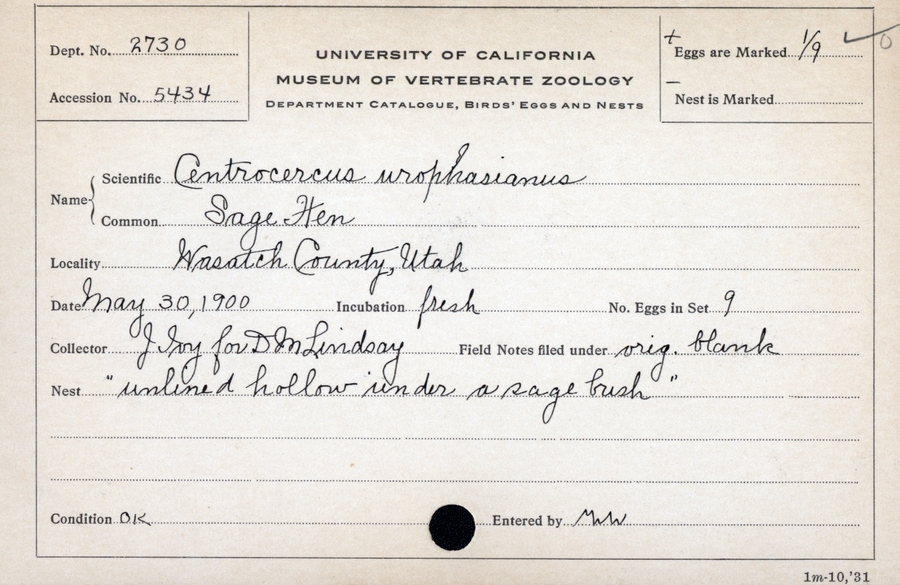 Dept. No. 2730
Accession No. 5434
UNIVERSITY OF CALIFORNIA
MUSEUM OF VERTEBRATE ZOOLOGY
DEPARTMENT CATALOGUE, BIRDS' EGGS AND NESTS
+ Eggs are Marked 1/9 ✓ 0
– Nest is Marked
Name { Scientific Centrocercus urophasianus
Common Sage Hen
Locality Wasatch County, Utah
Date May 30, 1900 Incubation fresh No. Eggs in Set 9
Collector J Ivy for D M Lindsay Field Notes filed under orig. blank
Nest "unlined hollow under a sage bush"
Condition OK Entered by
1m-10,'31